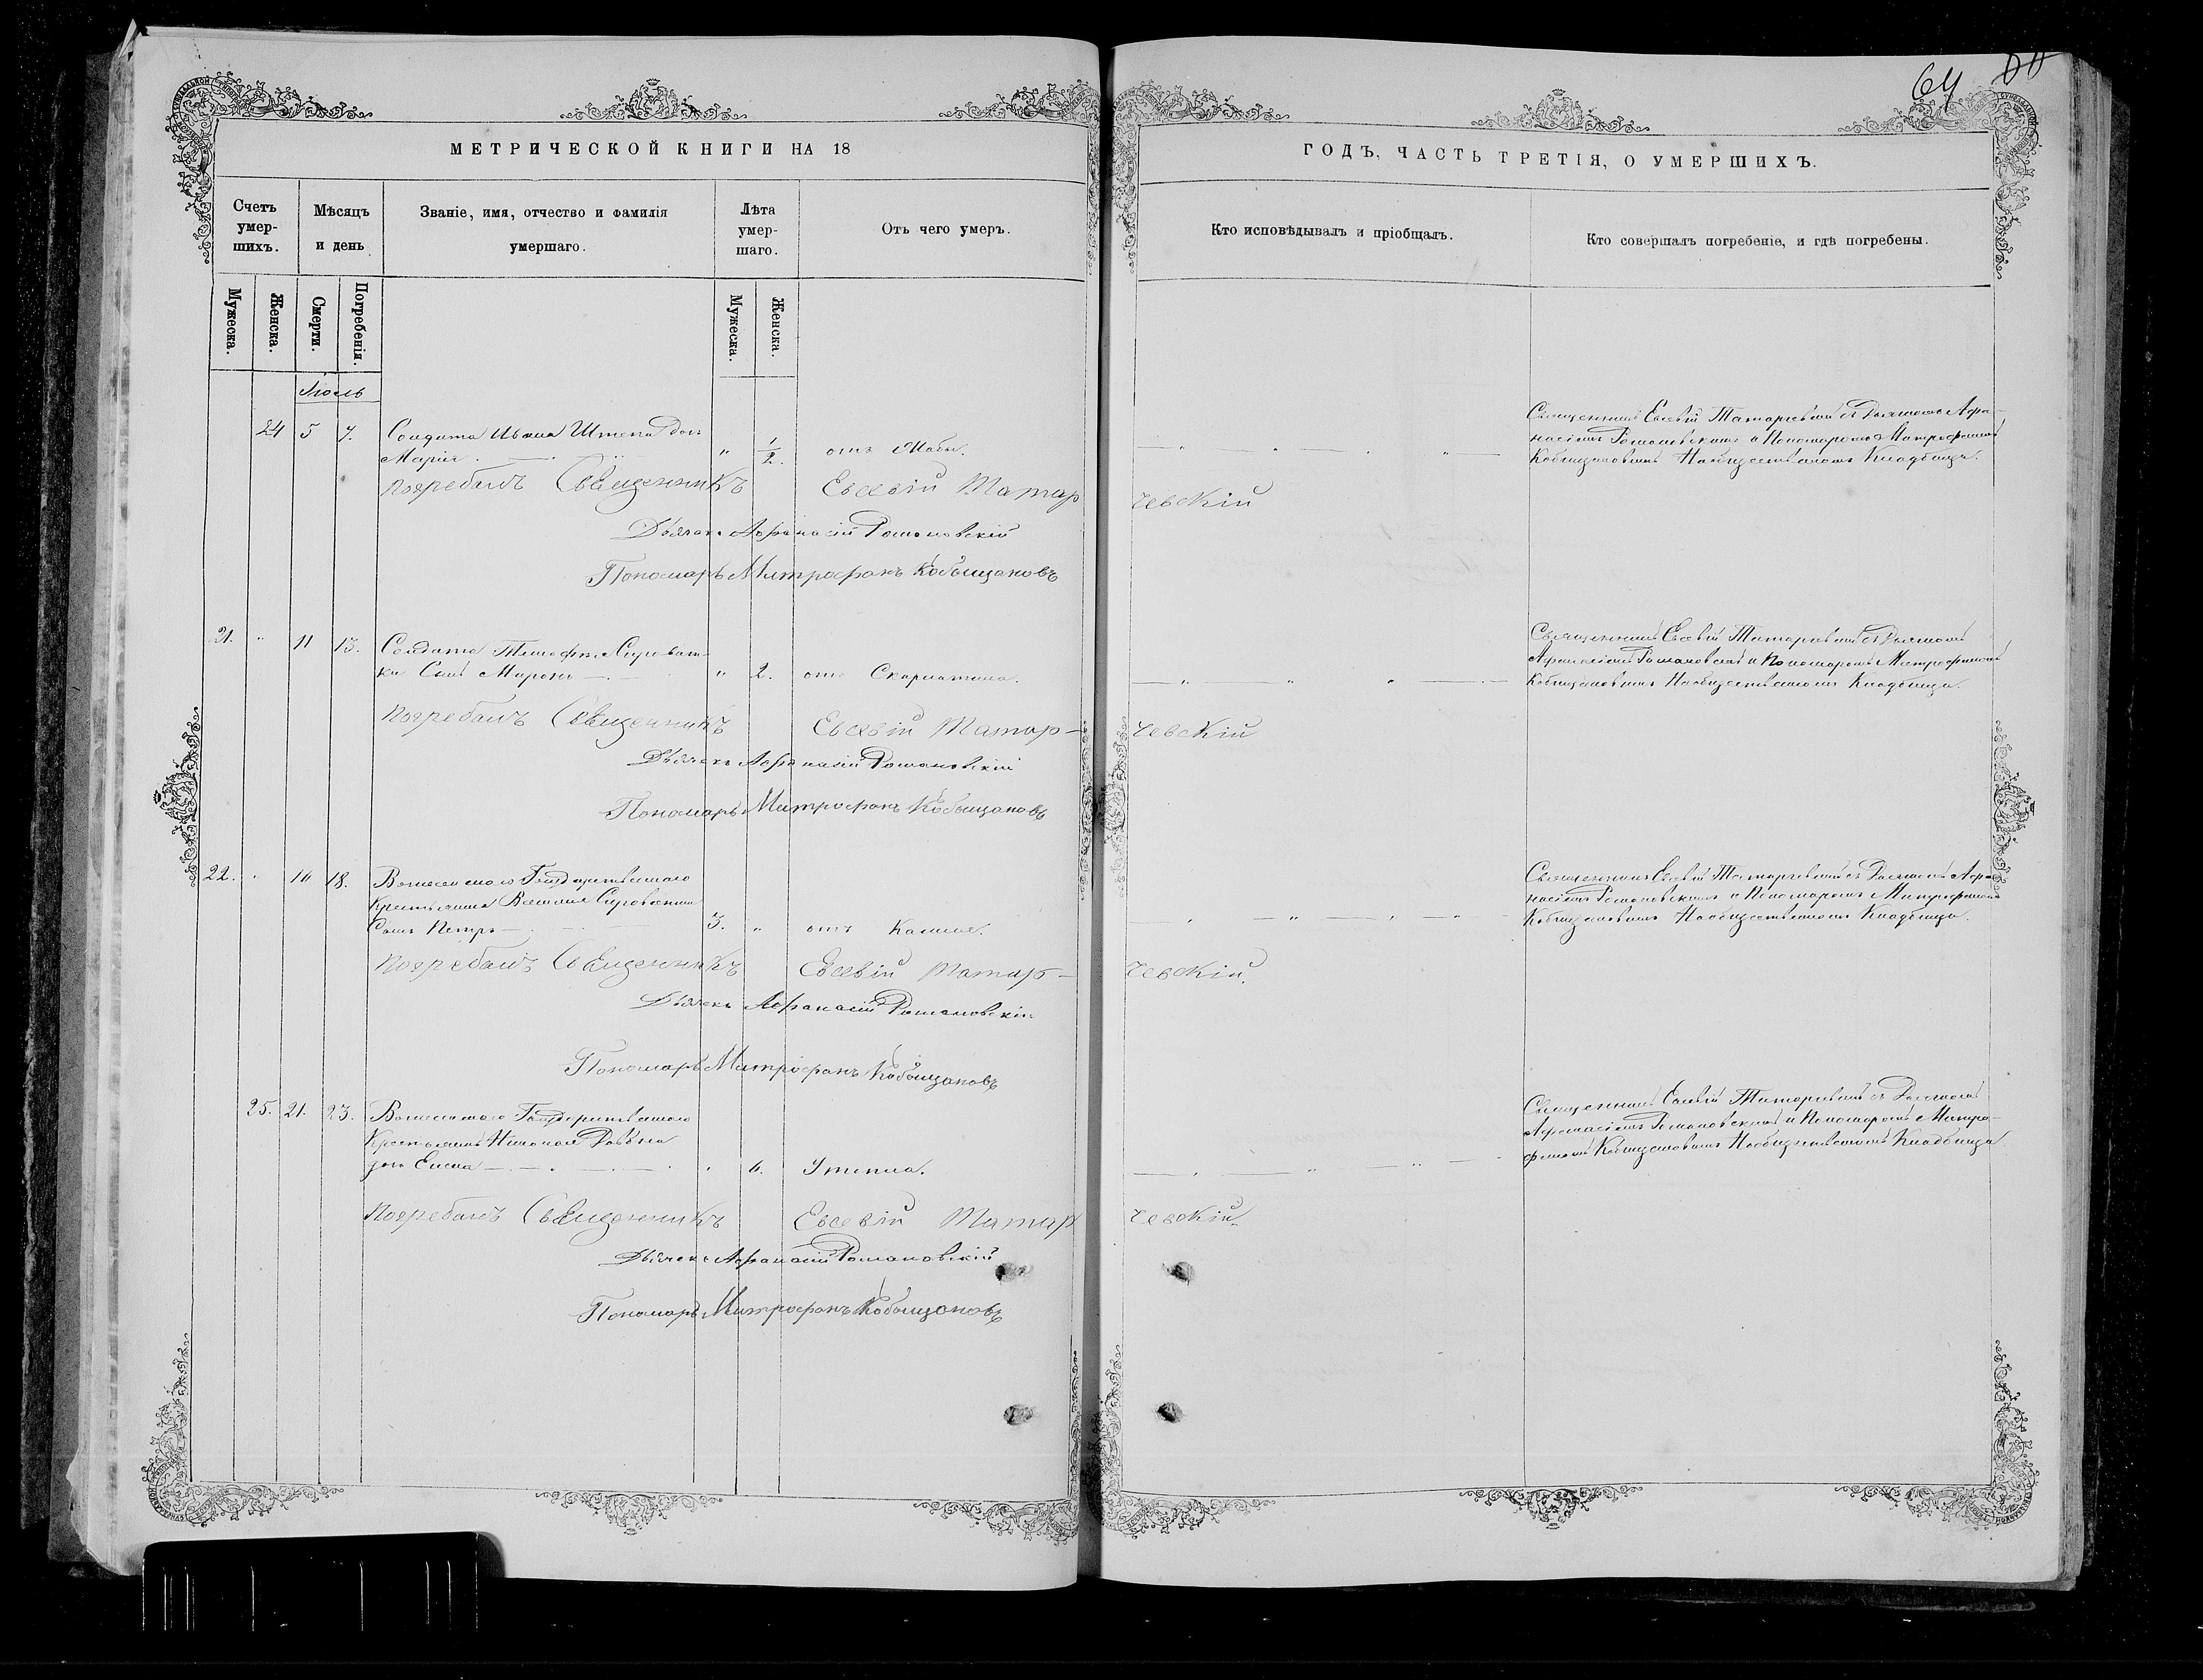 64
МЕТРИЧЕСКОЙ КНИГИ НА 18
ГОДЪ, ЧАСТЬ ТРЕТІЯ, О УМЕРШИХЪ.
Счетъ умер-шихъ.
Мѣсяцъ и день
Званіе, имя, отчество и фамилія умершаго.
Лѣта умер-шаго.
Отъ чего умеръ.
Кто исповѣдывалъ и пріобщалъ.
Кто совершалъ погребеніе, и гдѣ погребены.
Мужеска.
Женска.
Смерти.
Погребенія.
Мужеска.
Женска.
Іюль
24 5 7. Солдата Ивана дочь
Марія " 1/2. отъ Жабы.
Священникъ Евсевій Татарчевскій съ Дьячкомъ Афа-
насіемъ Романовскимъ и Пономаремъ Митрофаномъ
Кобыщановымъ На общественномъ Кладбище.
Погребалъ Священникъ Евсевій Татар чевскій
Дьячекъ Афанасій Романовскій
Пономарь Митрофанъ Кобыщановъ
21. " 11 13. Солдата
Сынъ Миронъ " 2. отъ Скарлатина.
Священникъ Евсевій Татарчевскій съ Дьячкомъ
Афанасіемъ Романовскимъ и Пономаремъ Митрофаномъ
Кобыщановымъ На общественномъ Кладбище.
Погребалъ Священникъ Евсевій Татар- чевскій
Дьячекъ Афанасій Романовскій
Пономарь Митрофанъ Кобыщановъ
22. 16 18. Государственнаго
Крестьянина
Сынъ Петръ 3. " отъ Кашля.
Священникъ Евсевій Татарчевскій съ Дьячкомъ Афа-
насіемъ Романовскимъ и Пономаремъ Митрофаномъ
Кобыщановымъ На общественномъ Кладбище.
Погребалъ Священникъ Евсевій Татар- чевскій.
Дьячекъ Афанасій Романовскій
Пономарь Митрофанъ Кобыщановъ
25. 21. 23. Государственнаго
Крестьянина Николая
дочь Елена 6. Утопла.
Священникъ Евсевій Татарчевскій съ Дьячкомъ
Афанасіемъ Романовскимъ и Пономаремъ Митро-
фаномъ Кобыщановымъ На общественномъ Кладбище
Погребалъ Священникъ Евсевій Татар чевскій.
Дьячекъ Афанасій Романовскій
Пономарь Митрофанъ Кобыщановъ